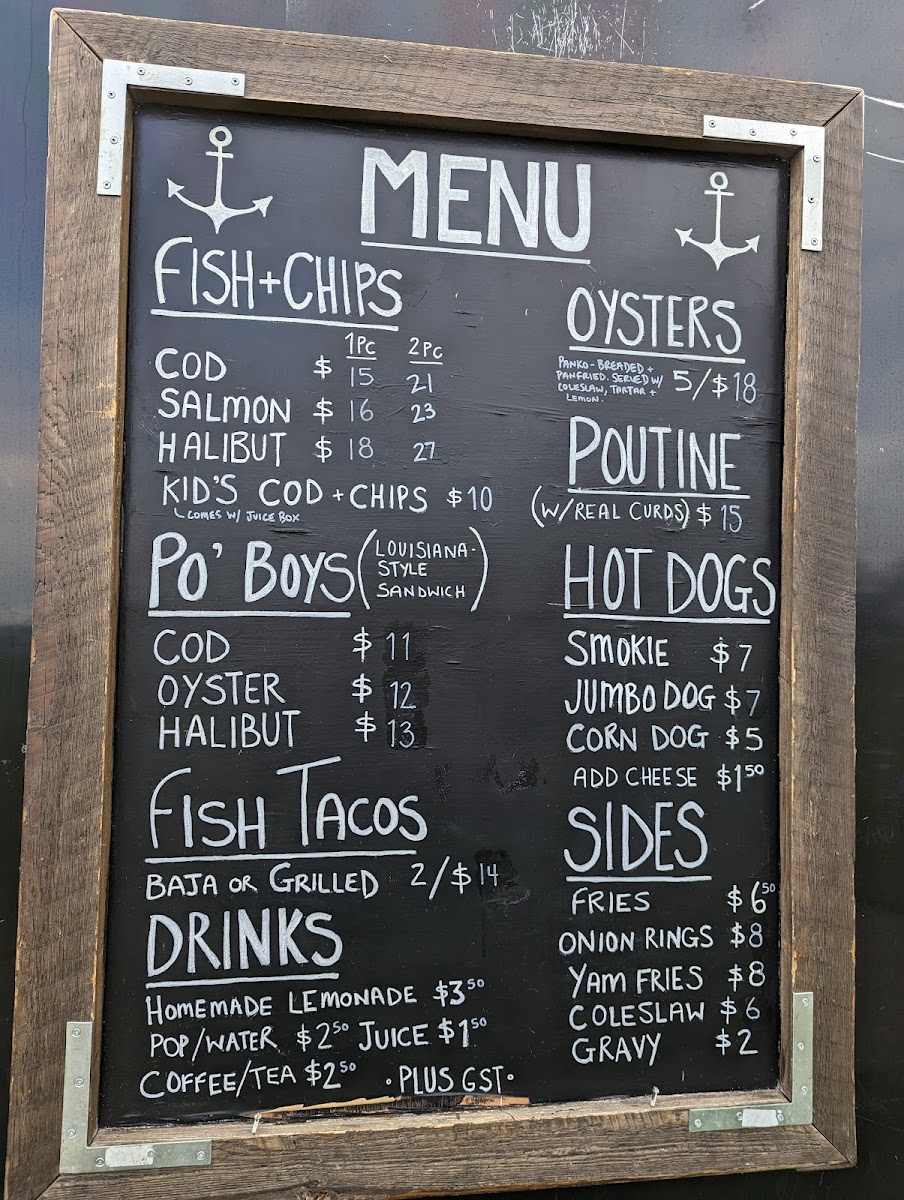 MENU
FISH+CHIPS
1PC 2PC
COD $ 15 21
SALMON $ 16 23
HALIBUT $ 18 27
KID'S COD + CHIPS $10
COMES W/ JUICE BOX
PO' BOYS (LOUISIANA-
STYLE
SANDWICH)
COD $ 11
OYSTER $ 12
HALIBUT $ 13
FISH TACOS
BAJA OR GRILLED 2/$14
DRINKS
HOMEMADE LEMONADE $3.50
POP/WATER $2.50 JUICE $1.50
COFFEE/TEA $2.50 • PLUS GST •
OYSTERS
PANKO-BREADED +
PANFRIED. SERVED W/
COLESLAW, TARTAR +
LEMON.
5/$18
POUTINE
(W/REAL CURDS) $ 15
HOT DOGS
SMOKIE $7
JUMBO DOG $7
CORN DOG $5
ADD CHEESE $1.50
SIDES
FRIES $6.50
ONION RINGS $8
YAM FRIES $8
COLESLAW $6
GRAVY $2